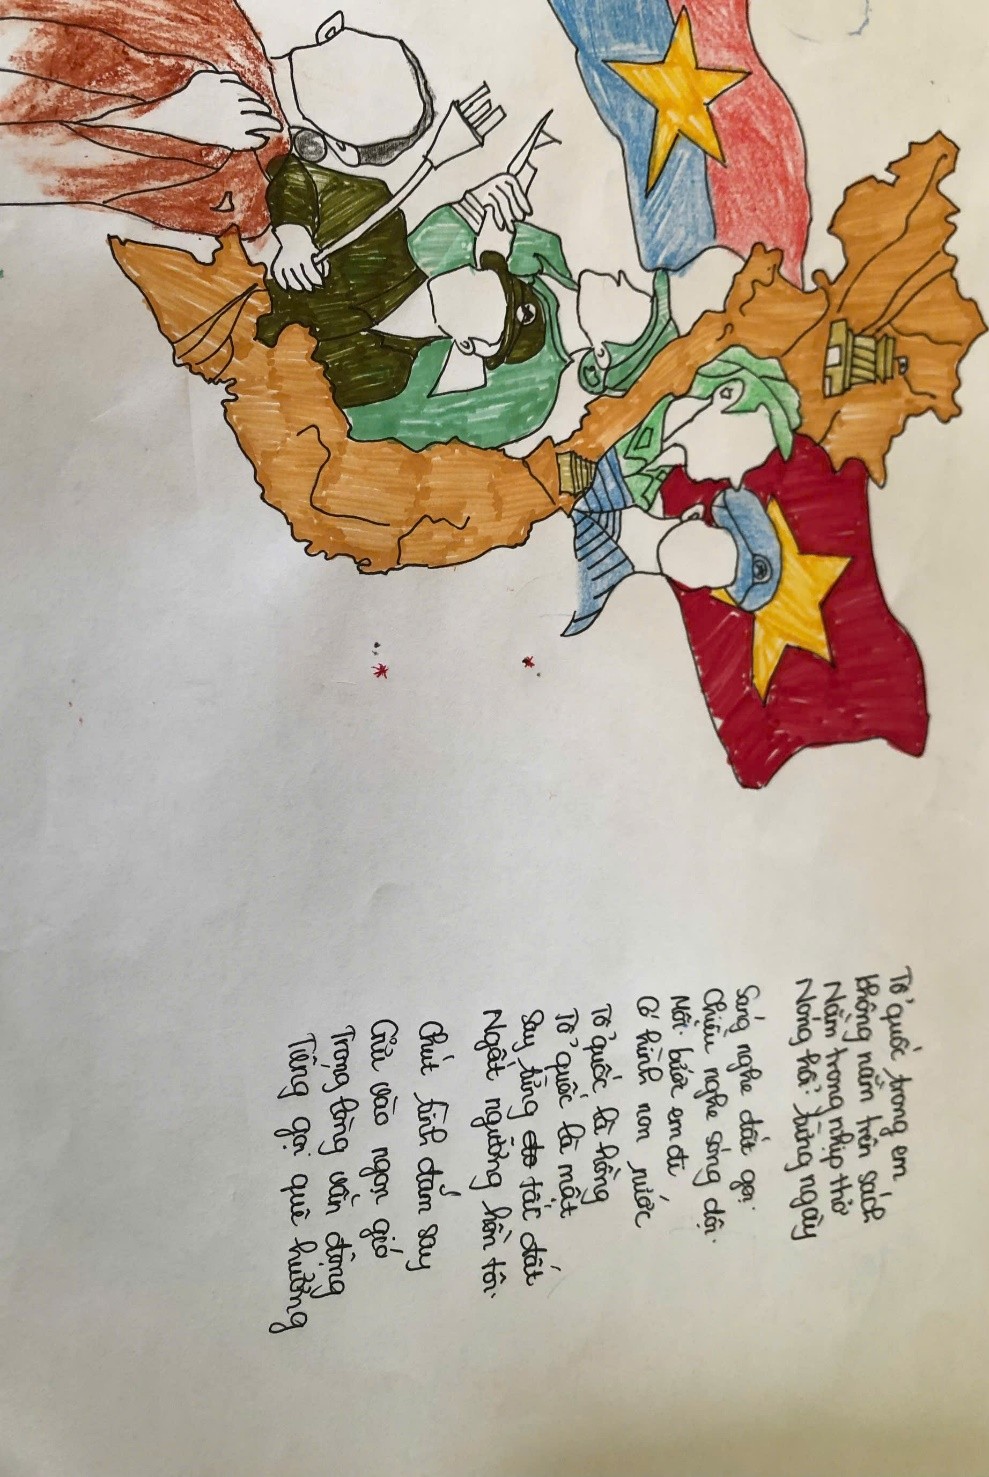 Tổ quốc trong em
không nằm trên sách
Nằm trong nhịp thở
Nóng hổi từng ngày
Sáng nghe đất gọi.
Chiều nghe sóng dội.
Mỗi bước em đi
Có hình non nước
Tổ quốc là hồng
Tổ quốc là mật
Say từng tấc đất
Ngất ngưỡng hồn tôi.
Chút tình đắm say
Gửi vào ngọn gió
Trong lòng vẫn động
Tiếng gọi quê hương